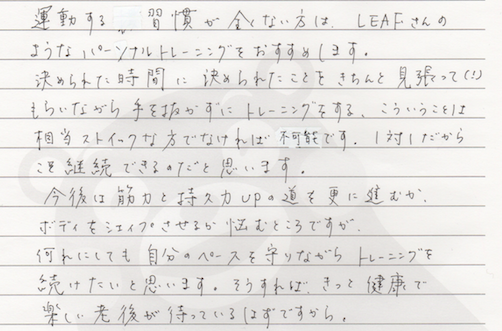 運動する習慣が全くない方は、LEAFさんの
ようなパーソナルトレーニングをおすすめします。
決められた時間に決められたことをきちんと見張って(!)
もらいながら手を抜かずにトレーニングをする、こういうことは
相当ストイックな方でなければ不可能です。1対1だから
こそ継続できるのだと思います。
今後は筋力と持久力upの道を更に進むか、
ボディをシェイプさせるか悩むところですが、
何れにしても自分のペースを守りながらトレーニングを
続けたいと思います。そうすれば、きっと健康で
楽しい老後が待っているはずですから。